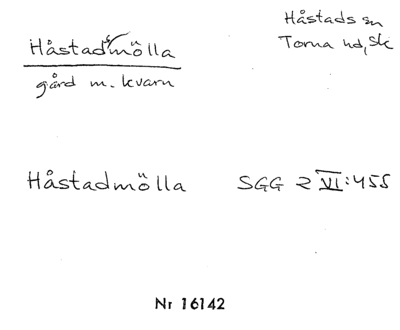 Håstads sn
Torna hd, Sk
Håstadsmölla
gård m. kvarn
Håstadmölla SGG 2 VI:455
Nr 16142